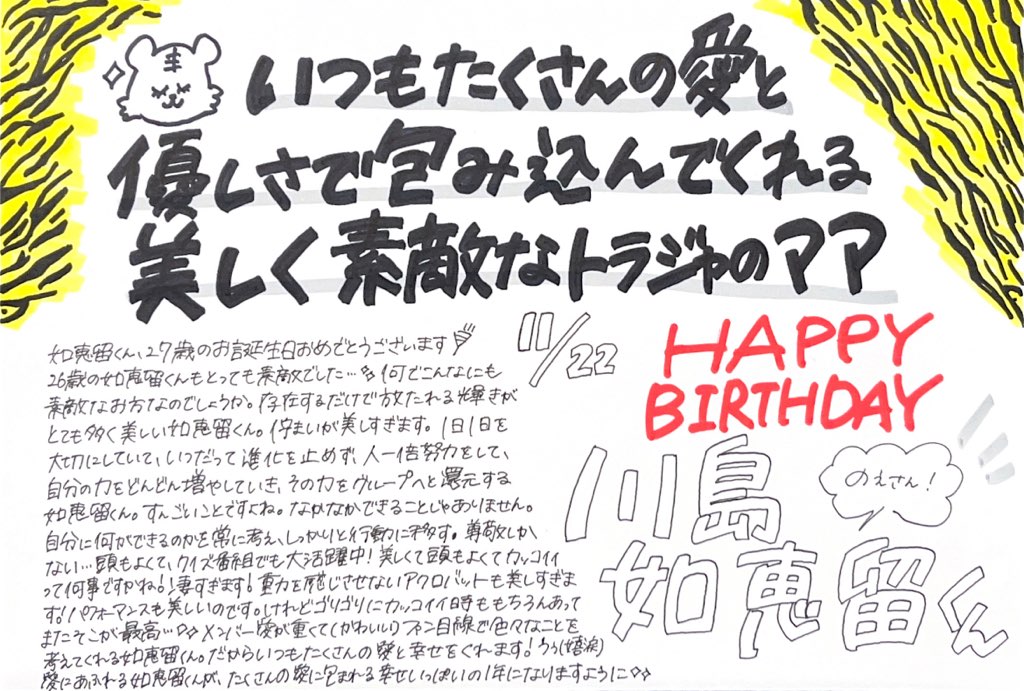 いつもたくさんの愛と
優しさで包み込んでくれる
美しく素敵なトラジャのママ
11/22
HAPPY
BIRTHDAY
川島
如恵留くん
のえさん！
如恵留くん、27歳のお誕生日おめでとうございます
26歳の如恵留くんもとっても素敵でした…何でこんなにも
素敵なお方なのでしょうか。存在するだけで放たれる輝きが
とても多く美しい如恵留くん。佇まいが美しすぎます。1日1日を
大切にしていて、いつだって進化を止めず、人一倍努力をして、
自分の力をどんどん増やしていき、その力をグループへと還元する
如恵留くん。すんごいことですよね。なかなかできることじゃありません。
自分に何ができるのかを常に考え、しっかりと行動に移す。尊敬しか
ない…頭もよくて、クイズ番組でも大活躍中！美しくて頭もよくてカッコイイ
って何事ですかね！凄すぎます！重力を感じさせないアクロバットも美しすぎま
す！パフォーマンスも美しいのです。けれどゴリゴリにカッコイイ時ももちろんあって
またそこが最高…メンバー愛が重くて(かわいい)ファン目線で色々なことを
考えてくれる如恵留くん。だからいつもたくさんの愛と幸せをくれます！うぅ(嬉涙)
愛にあふれる如恵留くんが、たくさんの愛に包まれる幸せいっぱいの1年になりますように